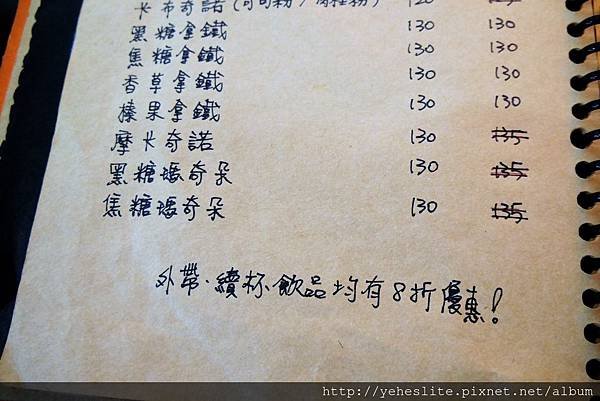 卡布奇諾(可可粉/肉桂粉) 120 135
黑糖拿鐵 130 130
焦糖拿鐵 130 130
香草拿鐵 130 130
榛果拿鐵 130 130
摩卡奇諾 130 135
黑糖瑪奇朵 130 135
焦糖瑪奇朵 130 135
外帶、續杯飲品均有8折優惠!
http://yeheslite.pixnet.net/album